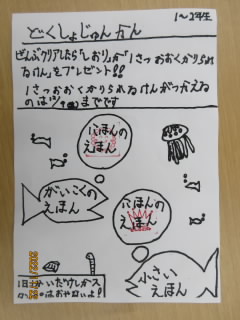 1〜2年生
どくしょじゅんかん
ぜんぶクリアしたら「しおり」か「1さつおおくかりられ
るけん」をプレゼント!!
1さつおおくかりられるけんがつかえる
のは までです
にほんの
えほん
がいこくの
えほん
にほんの
えほん
小さい
えほん
1日 いだけしかス
はおせないよ!